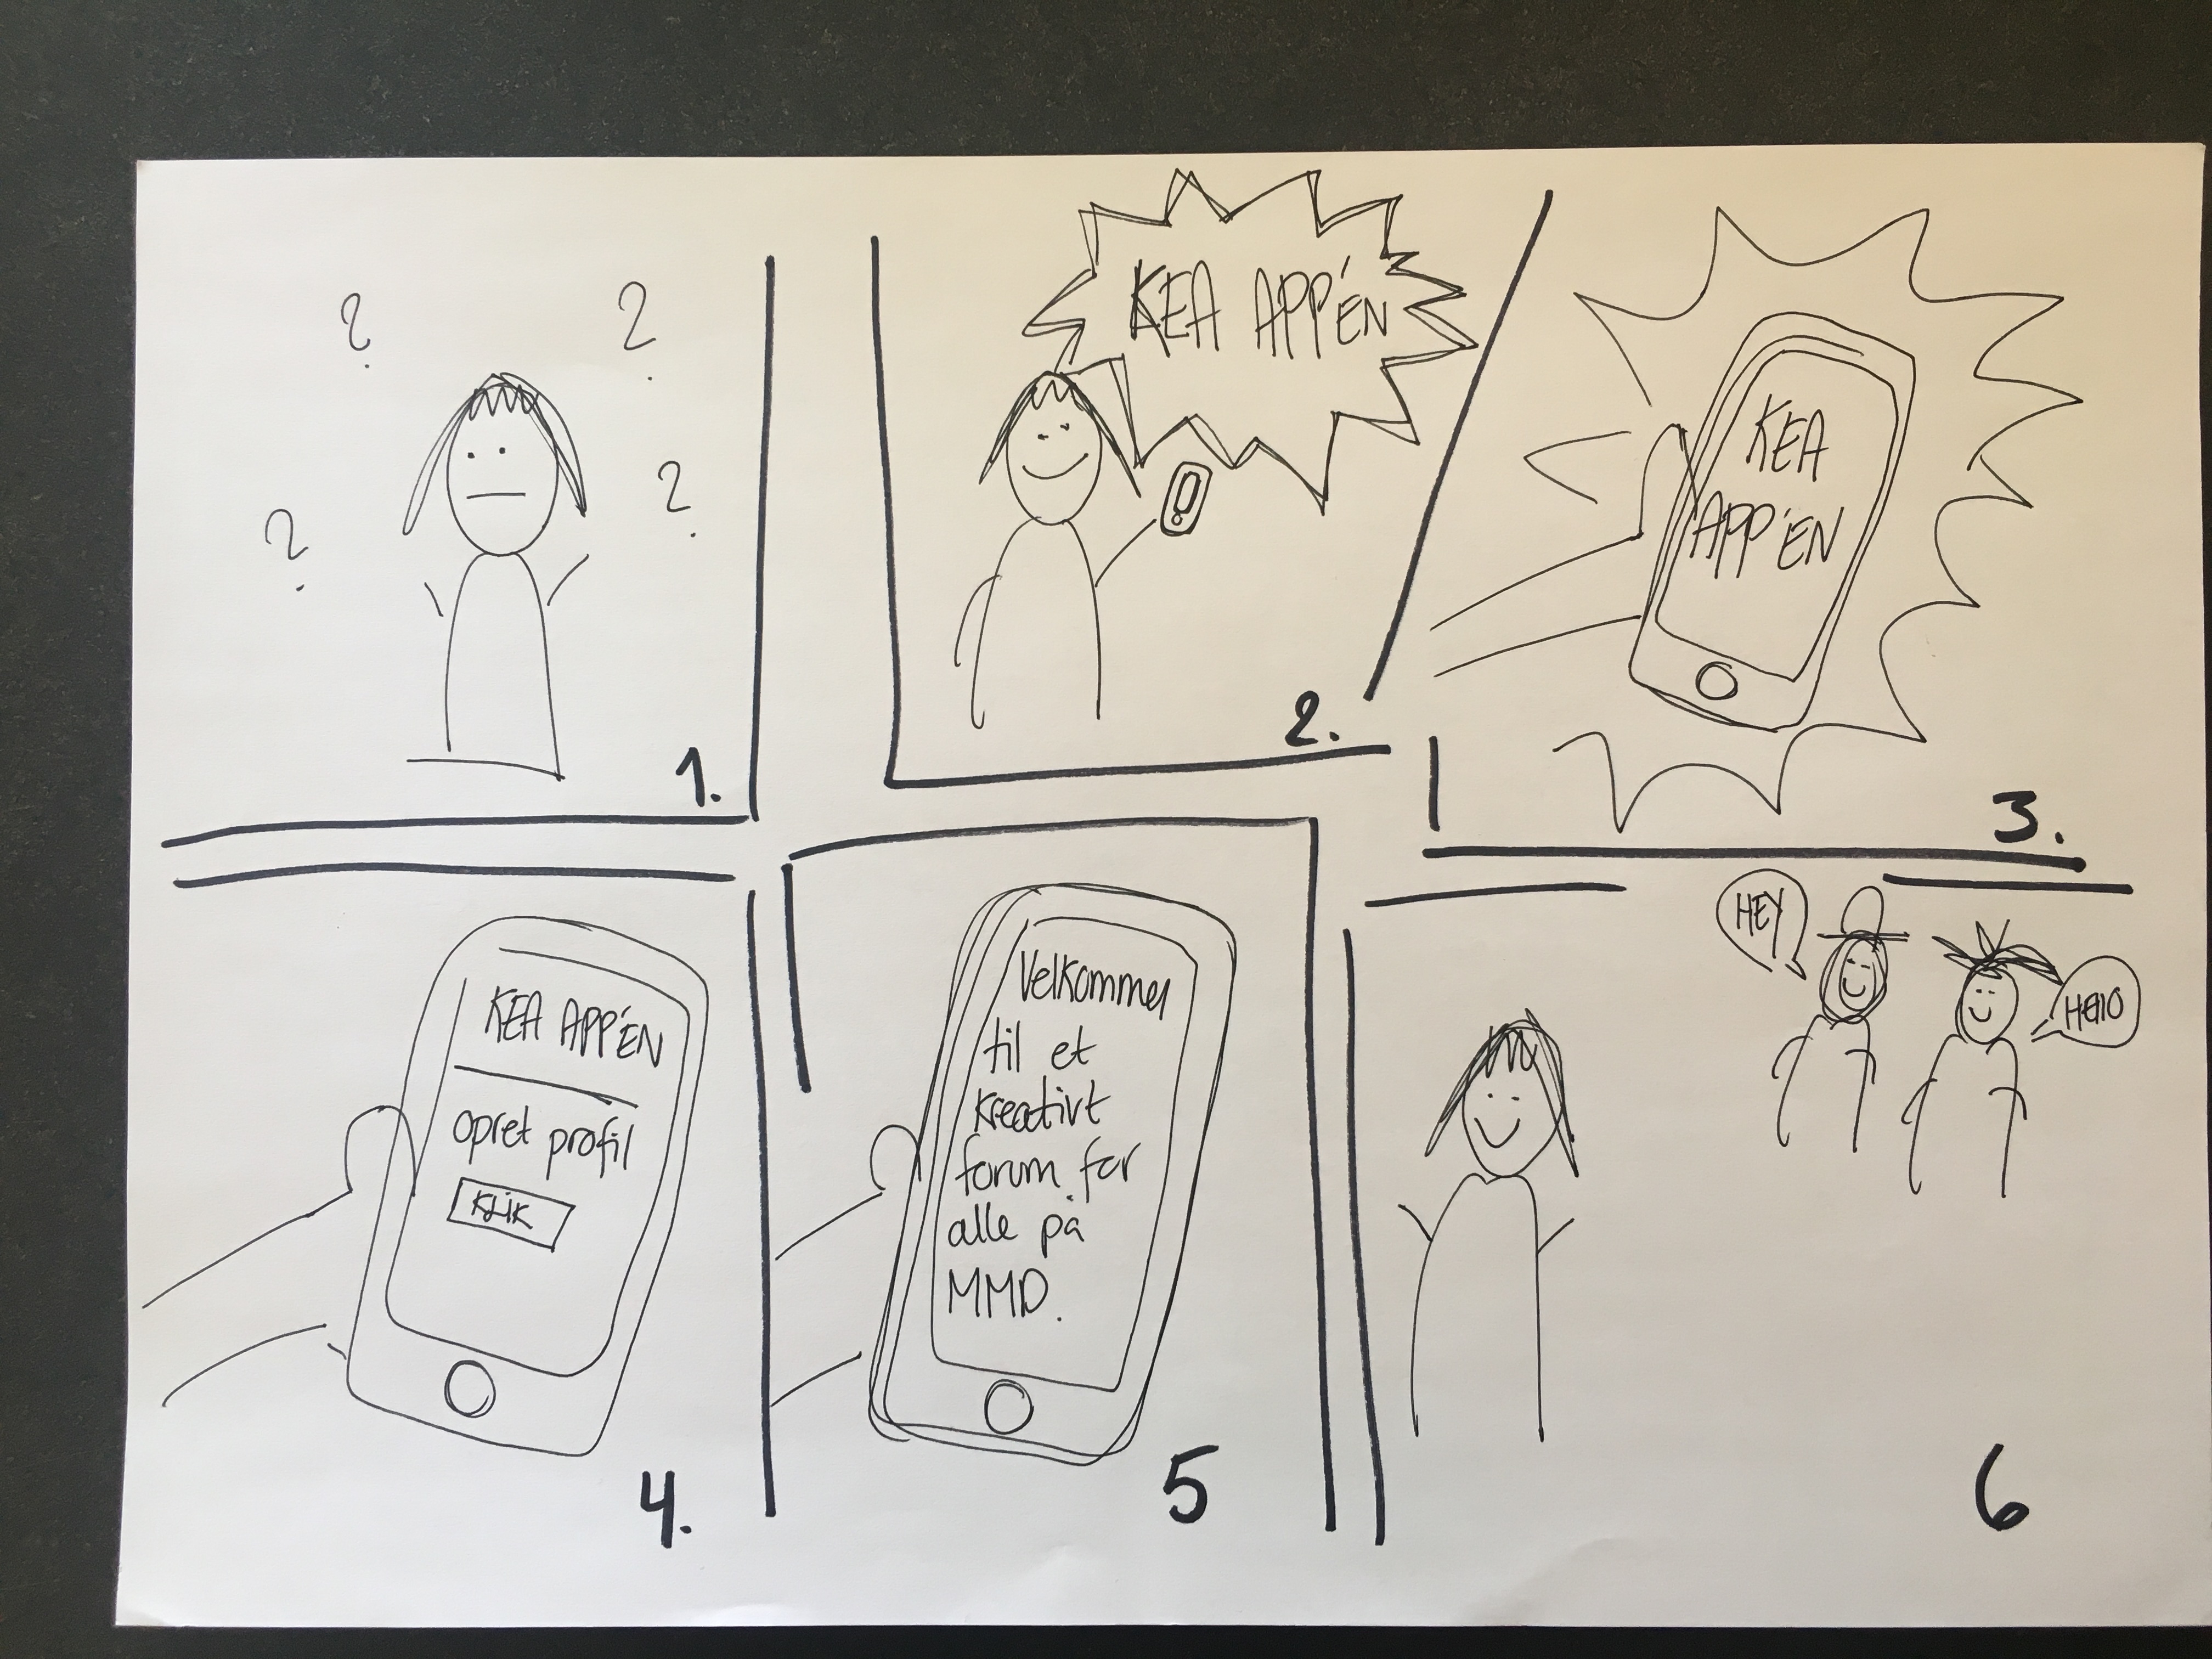 ? ?
? ?
1.
KEA APP'EN
!
2.
KEA
APP'EN
3.
KEA APP'EN
opret profil
KLIK
4.
Velkommen
til et
kreativt
forum for
alle på
MMD.
5
HEY
HELLO
6